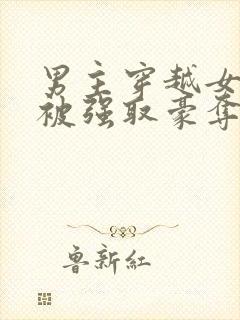 男主穿越女
被强取豪夺
鲁新红